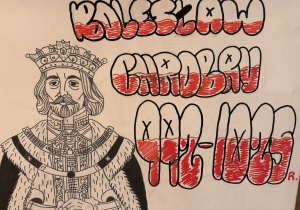 BOLESŁAW
CHROBRY
992-1025 R.